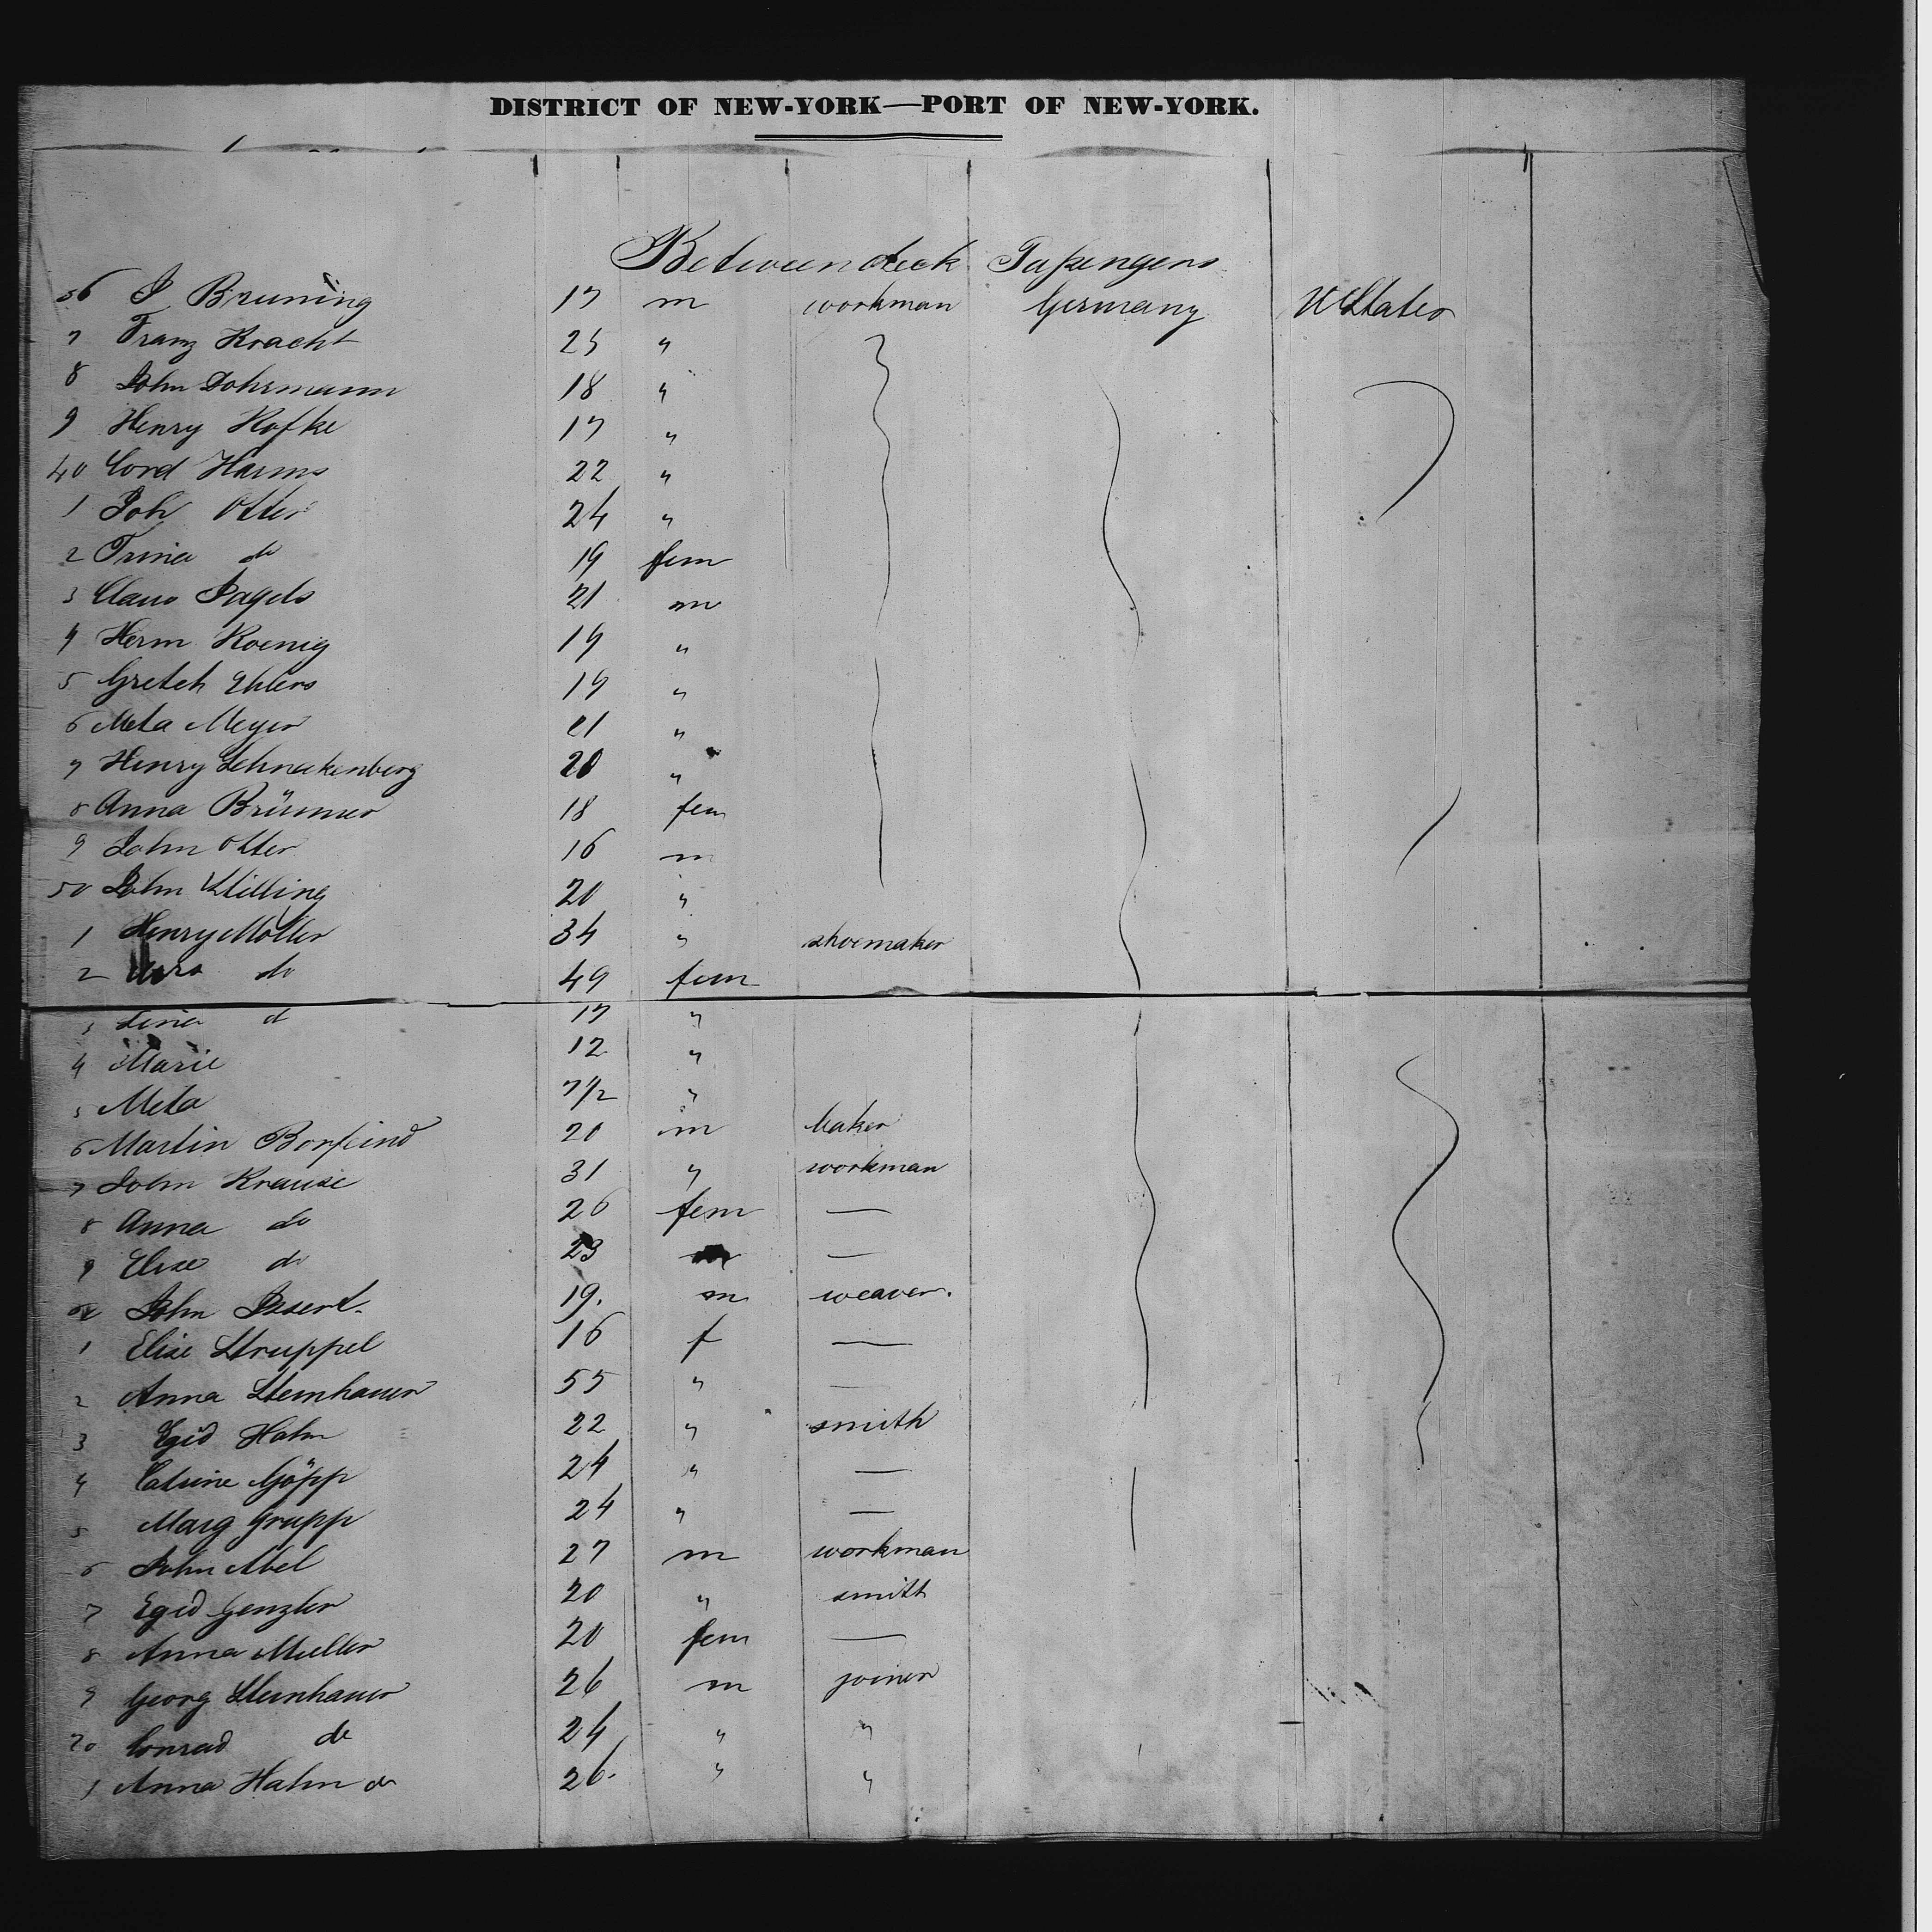 DISTRICT OF NEW-YORK—PORT OF NEW-YORK.
Between deck Passengers
36 J Bruning 17 m workman Germany U States
7 Franz Kracht 25 "
8 John Dohrmann 18 "
9 Henry Kofke 17 "
40 Cord Harms 22 "
1 Joh Otter 24 "
2 Trina do 19 fem
3 Claus Pagels 21 m
4 Herm Koenig 19 "
5 Gretch Ehlers 19 "
6 Meta Meyer 21 "
7 Henry Schnakenberg 20 "
8 Anna Brümmer 18 fem
9 John Otter 16 m
50 John Stilling 20 "
1 Henry Möller 34 " shoemaker
2 do 49 fem
3 Lina d 17 "
4 Marie 12 "
5 Meta 7 1/2 "
6 Martin Borfeind 20 m baker
7 John Krause 31 " workman
8 Anna do 26 fem —
9 Elise do 23 —
John 19. m weaver.
1 Elise Struppel 16 f —
2 Anna Steinhauer 55 " —
3 Egid Hahn 22 " smith
4 Catrine Göpp 24 " —
5 Marg Grupp 24 " —
6 John Abel 27 m workman
7 Egid Genzler 20 " smith
8 Anna Muller 20 fem —
9 Georg Steinhauer 26 m joiner
70 Conrad do 24 " "
1 Anna Hahn do 26. " "